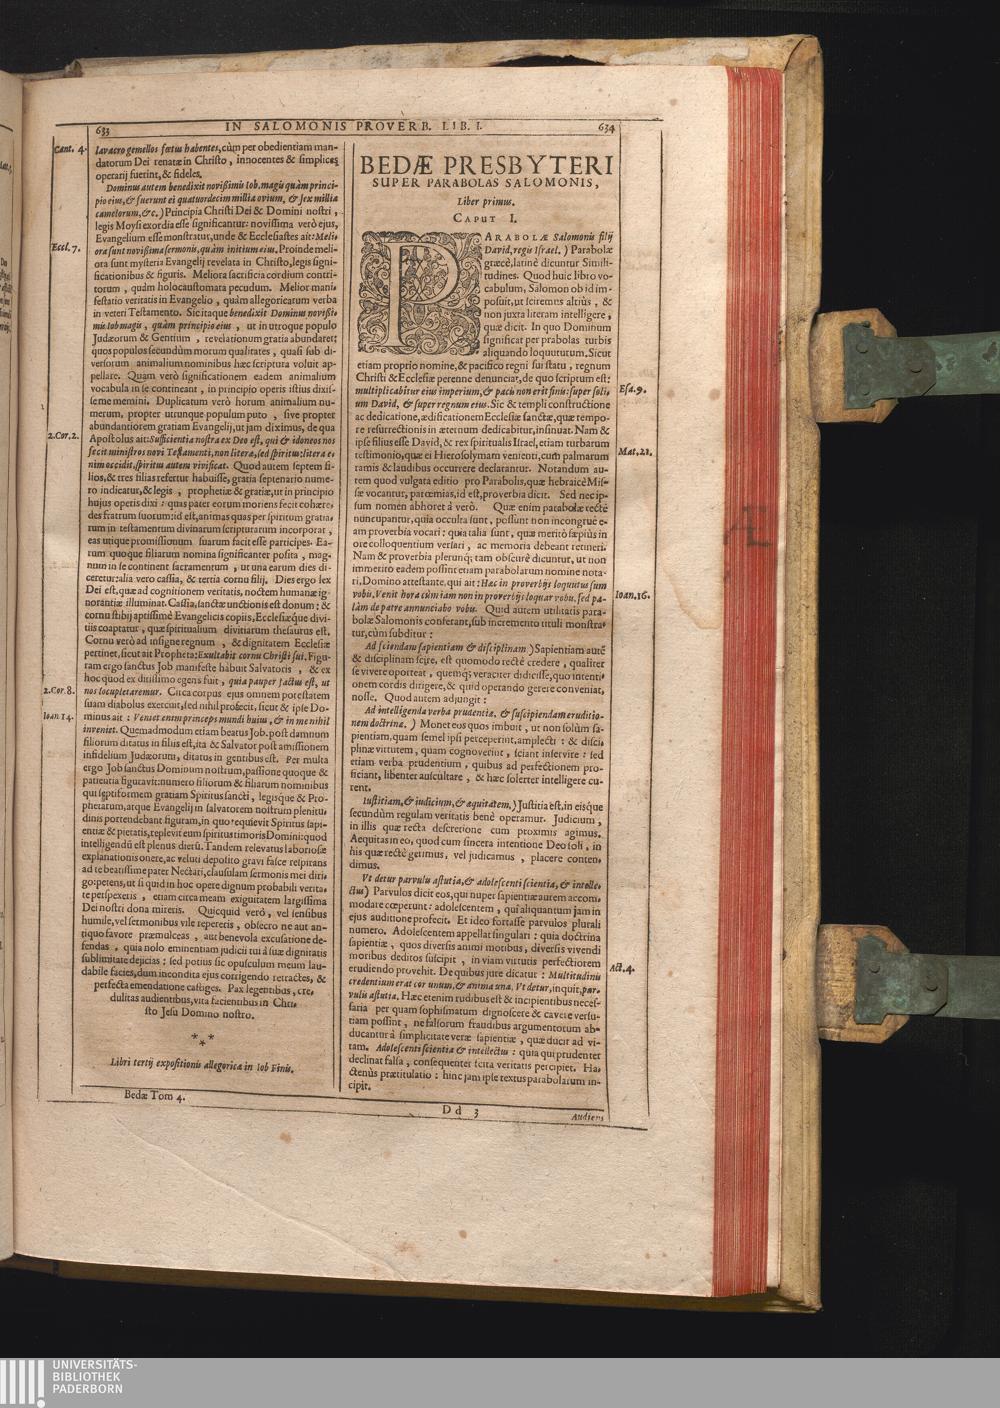 633 IN SALOMONIS PROVERB. LIB. I. 634
Cant. 4.
lavacro gemellos fœtus habentes, cùm per obedientiam man-
datorum Dei renatæ in Christo, innocentes & simplices
operarij fuerint, & fideles.
Dominus autem benedixit novißimis Iob, magis quàm princi-
pio eius, & fuerunt ei quatuordecim millia ovium, & sex millia
camelorum, &c.) Principia Christi Dei & Domini nostri,
legis Moysi exordia esse significantur: novissima verò ejus,
Evangelium esse monstratur, unde & Ecclesiastes ait: Melio
Eccl. 7.
ora sunt novißima sermonis, quàm initium eius. Proinde meli-
ora sunt mysteria Evangelij revelata in Christo, legis signi-
ficationibus & figuris. Meliora sacrificia cordium contri-
torum, quàm holocaustomata pecudum. Melior mani-
festatio veritatis in Evangelio, quàm allegoricarum verba
in veteri Testamento. Sic itaque benedixit Dominus novißi-
mis Iob magis, quàm principio eius, ut in utroque populo
Judæorum & Gentium, revelationum gratia abundaret:
quos populos secundùm morum qualitates, quasi sub di-
versorum animalium nominibus hæc scriptura voluit ap-
pellare. Quam verò significationem eadem animalium
vocabula in se contineant, in principio operis istius dixis-
se me memini. Duplicatum verò horum animalium nu-
merum, propter utrunque populum puto, sive propter
abundantiorem gratiam Evangelij, ut jam diximus, de qua
2. Cor. 2.
Apostolus ait: Sufficientia nostra ex Deo est, qui & idoneos nos
fecit ministros novi Testamenti, non literæ, sed spiritus: litera e-
nim occidit, spiritus autem vivificat. Quod autem septem fi-
lios, & tres filias refertur habuisse, gratia septenario nume-
ro indicatur, & legis, prophetiæ & gratiæ, ut in principio
hujus operis dixi: quas pater eorum moriens fecit cohære-
des fratrum suorum: id est, animas quas per spiritum gratia-
rum in testamentum divinarum scripturarum incorporat,
eas utique promissionum suarum facit esse participes. Ea-
rum quoque filiarum nomina significanter posita, mag-
num in se continent sacramentum, ut una earum dies di-
ceretur: alia vero cassia, & tertia cornu stibij. Dies ergo lex
Dei est, quæ ad cognitionem veritatis, noctem humanæ ig-
norantiæ illuminat. Cassia, sanctæ unctionis est donum: &
cornu stibij aptissimè Evangelicis copiis, Ecclesiæque divi-
tiis coaptatur, quæ spiritualium divitiarum thesaurus est.
Cornu verò ad insigne regnum, & dignitatem Ecclesiæ
pertinet, sicut ait Propheta: Exultabit cornu Christi sui. Figu-
ram ergo sanctus Job manifeste habuit Salvatoris, & ex
hoc quod ex ditissimo egens fuit, quia pauper factus est, ut
2. Cor. 8.
nos locupletaremur. Circa corpus ejus omnem potestatem
suam diabolus exercuit, sed nihil profecit, sicut & ipse Do-
Ioan 14.
minus ait: Veniet enim princeps mundi huius, & in me nihil
inveniet. Quemadmodum etiam beatus Job, post damnum
filiorum ditatus in filiis est, ita & Salvator post amissionem
infidelium Judæorum, ditatus in gentibus est. Per multa
ergo Job sanctus Dominum nostrum, passione quoque &
patientia figuravit: numero filiorum & filiarum nominibus
qui septiformem gratiam Spiritus sancti, legisque & Pro-
phetarum, atque Evangelij in salvatorem nostrum plenitu-
dinis portendebant figuram, in quo requievit Spiritus sapi-
entiæ & pietatis, replevit eum spiritus timoris Domini: quod
intelligendū est plenus dierū. Tandem relevatus laboriosæ
explanationis onere, ac veluti deposito gravi fasce respirans
ad te beatissime pater Nectari, clausulam sermonis mei diri-
go: petens, ut si quid in hoc opere dignum probabili verita-
te perspexeris, etiam circa meam exiguitatem largissima
Dei nostri dona mireris. Quicquid verò, vel sensibus
humile, vel sermonibus vile repereris, obsecro ne aut an-
tiquo favore præmulceas, aut benevola excusatione de-
fendas, quia nolo eminentiam judicii tui à suæ dignitatis
sublimitate dejicias: sed potius sic opusculum meum lau-
dabile facies, dum incondita ejus corrigendo retractes, &
perfecta emendatione castiges. Pax legentibus, cre-
dulitas audientibus, vita facientibus in Chri-
sto Jesu Domino nostro.
***
Libri tertij expositionis allegoricæ in Iob Finis.
Bedæ Tom 4.
BEDÆ PRESBYTERI
SUPER PARABOLAS SALOMONIS,
Liber primus.
CAPUT I.
PARABOLÆ Salomonis filij
David, regis Israel.) Parabolæ
græcè, latinè dicuntur Simili-
tudines. Quod huic libro vo-
cabulum, Salomon ob id im-
posuit, ut sciremus altiùs, &
non juxta literam intelligere,
quæ dicit. In quo Dominum
significat per prabolas turbis
aliquando loquuturum. Sicut
etiam proprio nomine, & pacifico regni sui statu, regnum
Christi & Ecclesiæ perenne denunciat, de quo scriptum est:
multiplicabitur eius imperium, & pacis non erit finis: super soli-
Esa. 9.
um David, & super regnum eius. Sic & templi constructione
ac dedicatione, ædificationem Ecclesiæ sanctæ, quæ tempo-
re resurrectionis in æternum dedicabitur, insinuat. Nam &
ipse filius esse David, & rex spiritualis Israel, etiam turbarum
testimonio, quæ ei Hierosolymam venienti, cum palmarum
Mat. 21.
ramis & laudibus occurrere declarantur. Notandum au-
tem quod vulgata editio pro Parabolis, quæ hebraicè Mis-
sæ vocantur, parœmias, id est, proverbia dicit. Sed nec ip-
sum nomen abhoret à verò. Quæ enim parabolæ rectè
nuncupantur, quia occulta sunt, possunt non incongruè e-
am proverbia vocari: quia talia sunt, quæ meritò sæpiùs in
ore colloquentium versari, ac memoria debeant retineri.
Nam & proverbia plerunq; tam obscurè dicuntur, ut non
immerito eadem possint etiam parabolarum nomine nota-
ri, Domino attestante, qui ait: Hæc in proverbijs loquutus sum
vobis. Venit hora cùm iam non in proverbijs loquar vobis, sed pa-
Ioan. 16.
làm de patre annunciabo vobis. Quid autem utilitatis para-
bolæ Salomonis conferant, sub incremento tituli monstra-
tur, cùm subditur:
Ad sciendam sapientiam & disciplinam) Sapientiam autē
& disciplinam scire, est quomodo rectè credere, qualiter
se vivere oporteat, quemq; veraciter didicisse, quo intenti-
onem cordis dirigere, & quid operando gerere conveniat,
nosse. Quod autem adjungit:
Ad intelligenda verba prudentiæ, & suscipiendam eruditio-
nem doctrinæ.) Monet eos quos imbuit, ut non solùm sa-
pientiam, quam semel ipsi perceperint, amplecti: & disci-
plinæ virtutem, quam cognoverint, sciant inservire: sed
etiam verba prudentium, quibus ad perfectionem pro-
ficiant, libenter auscultare, & hæc solerter intelligere cu-
rent.
Iustitiam, & iudicium, & æquitatem,) Justitia est, in eisque
secundùm regulam veritatis benè operamur. Judicium,
in illis quæ recta descretione cum proximis agimus.
Aequitas in eo, quod cum sincera intentione Deo soli, in
his quæ rectè gerimus, vel judicamus, placere conten-
dimus.
Vt detur parvulis astutia, & adolescenti scientia, & intelle-
ctus) Parvulos dicit eos, qui nuper sapientiæ aurem accom-
modare cœperunt: adolescentem, qui aliquantum jam in
ejus auditione profecit. Et ideo fortasse parvulos plurali
numero. Adolescentem appellat singulari: quia doctrina
sapientiæ, quos diversis animi motibus, diversis vivendi
moribus deditos suscipit, in viam virtutis perfectiorem
erudiendo provehit. De quibus jure dicatur: Multitudinis
Act. 4.
credentium erat cor unum, & anima una. Vt detur, inquit, par-
vulis astutia. Hæc etenim rudibus est & incipientibus neces-
saria per quam sophismatum dignoscere & cavere versu-
tiam possint, ne falsorum fraudibus argumentorum ab-
ducantur à simplicitate veræ sapientiæ, quæ ducit ad vi-
tam. Adolescenti scientia & intellectus: quia qui prudenter
declinat falsa, consequenter scita veritatis percipiet. Ha-
ctenùs prætitulatio: hinc jam ipse textus parabolarum in-
cipit.
Dd 3 Audiens
UNIVERSITÄTS-
BIBLIOTHEK
PADERBORN